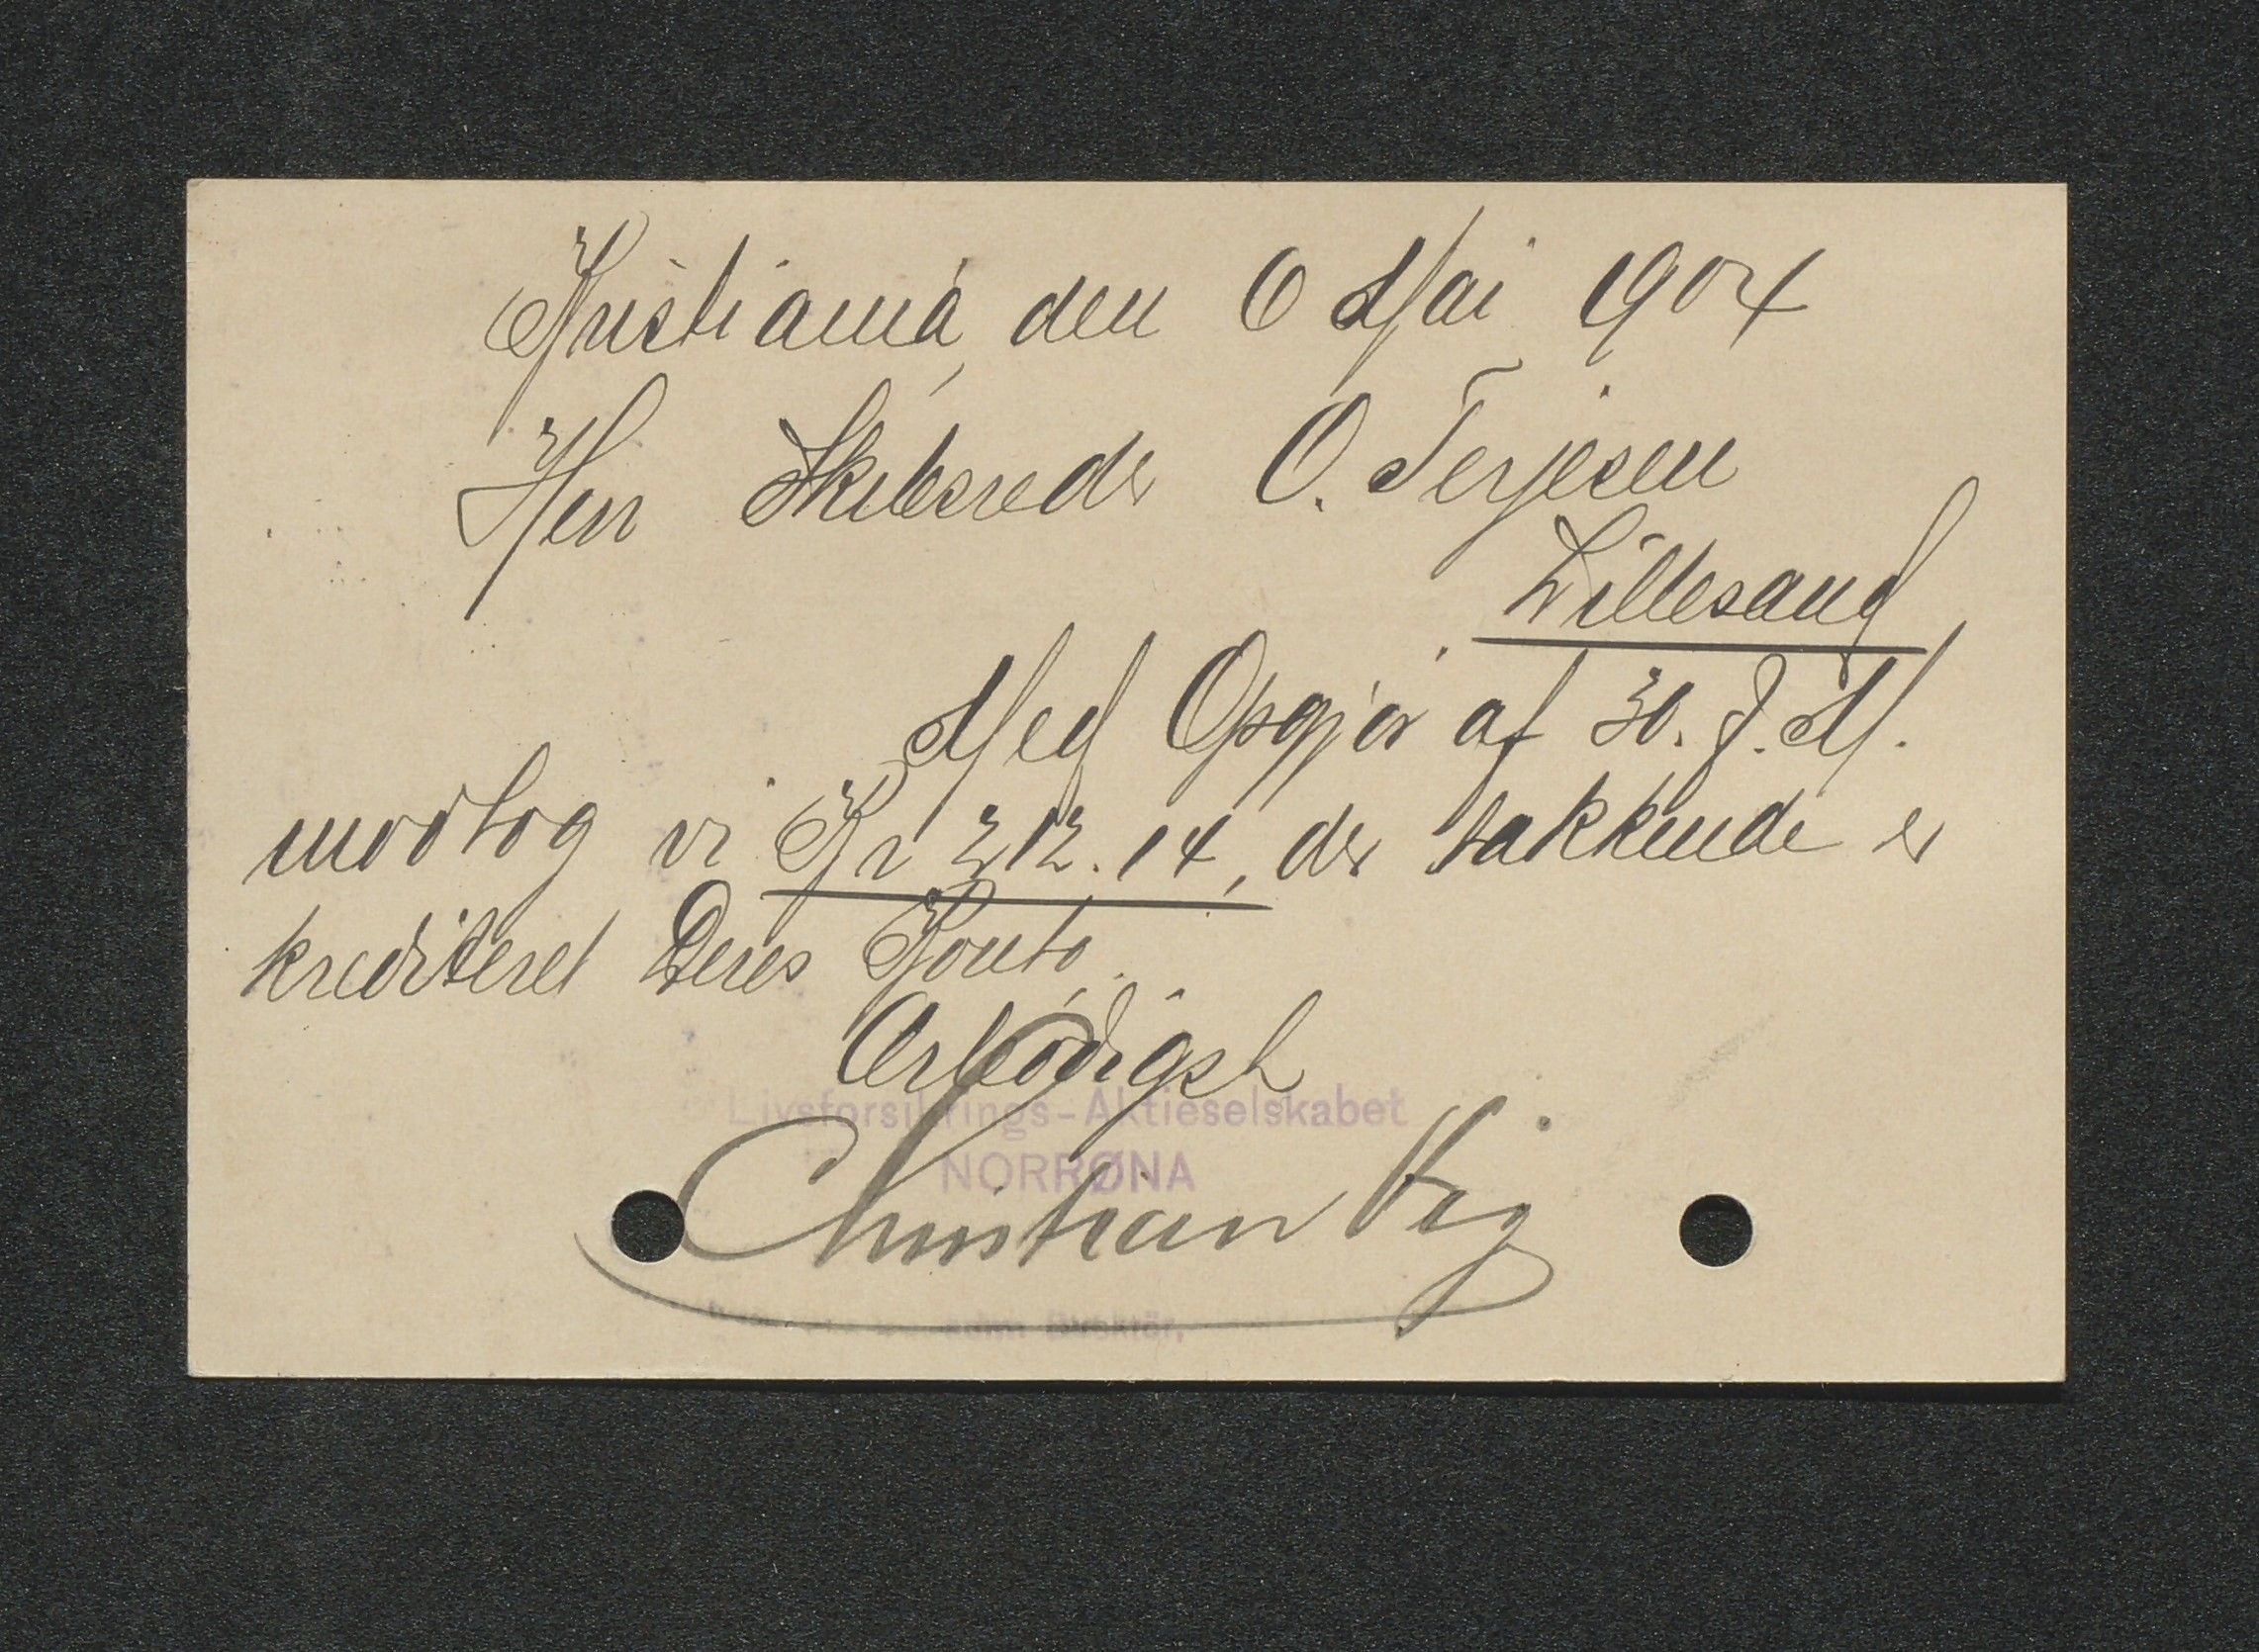 Kristiania, den 6 Mai 1904
Herr Skibsreder O. Terjesen
Lillesand
Med Opgjør af 30. f. M.
modtog vi Kr 212.14, der takkende er
krediteret Deres Konto.
Ærbødigst
Livsforsikrings-Aktieselskabet
NORRØNA
Christian
adm. Direktör.